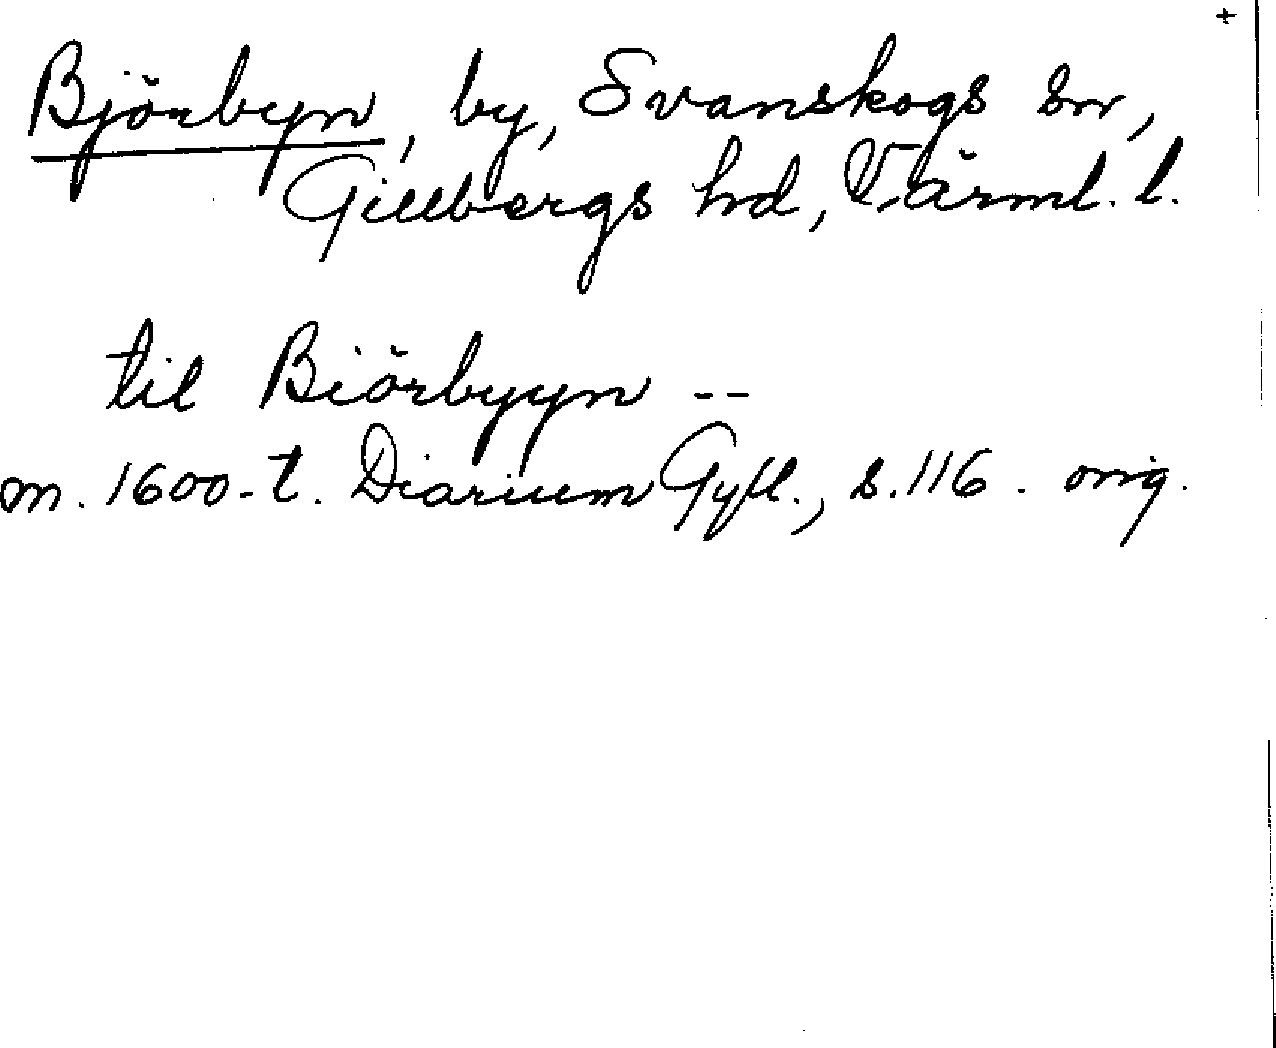 +
Björbyn, by, Svanskogs sn,
Gillbergs hd, Värml. l.
til Biörbyyn --
m. 1600-t. Diarium Gyll., s. 116. orig.